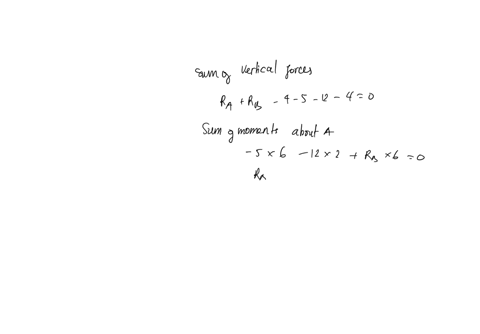 Sum of vertical forces
R_A + R_B - 4 - 5 - 12 - 4 = 0
Sum of moments about A
- 5 × 6 - 12 × 2 + R_B × 6 = 0
R_A